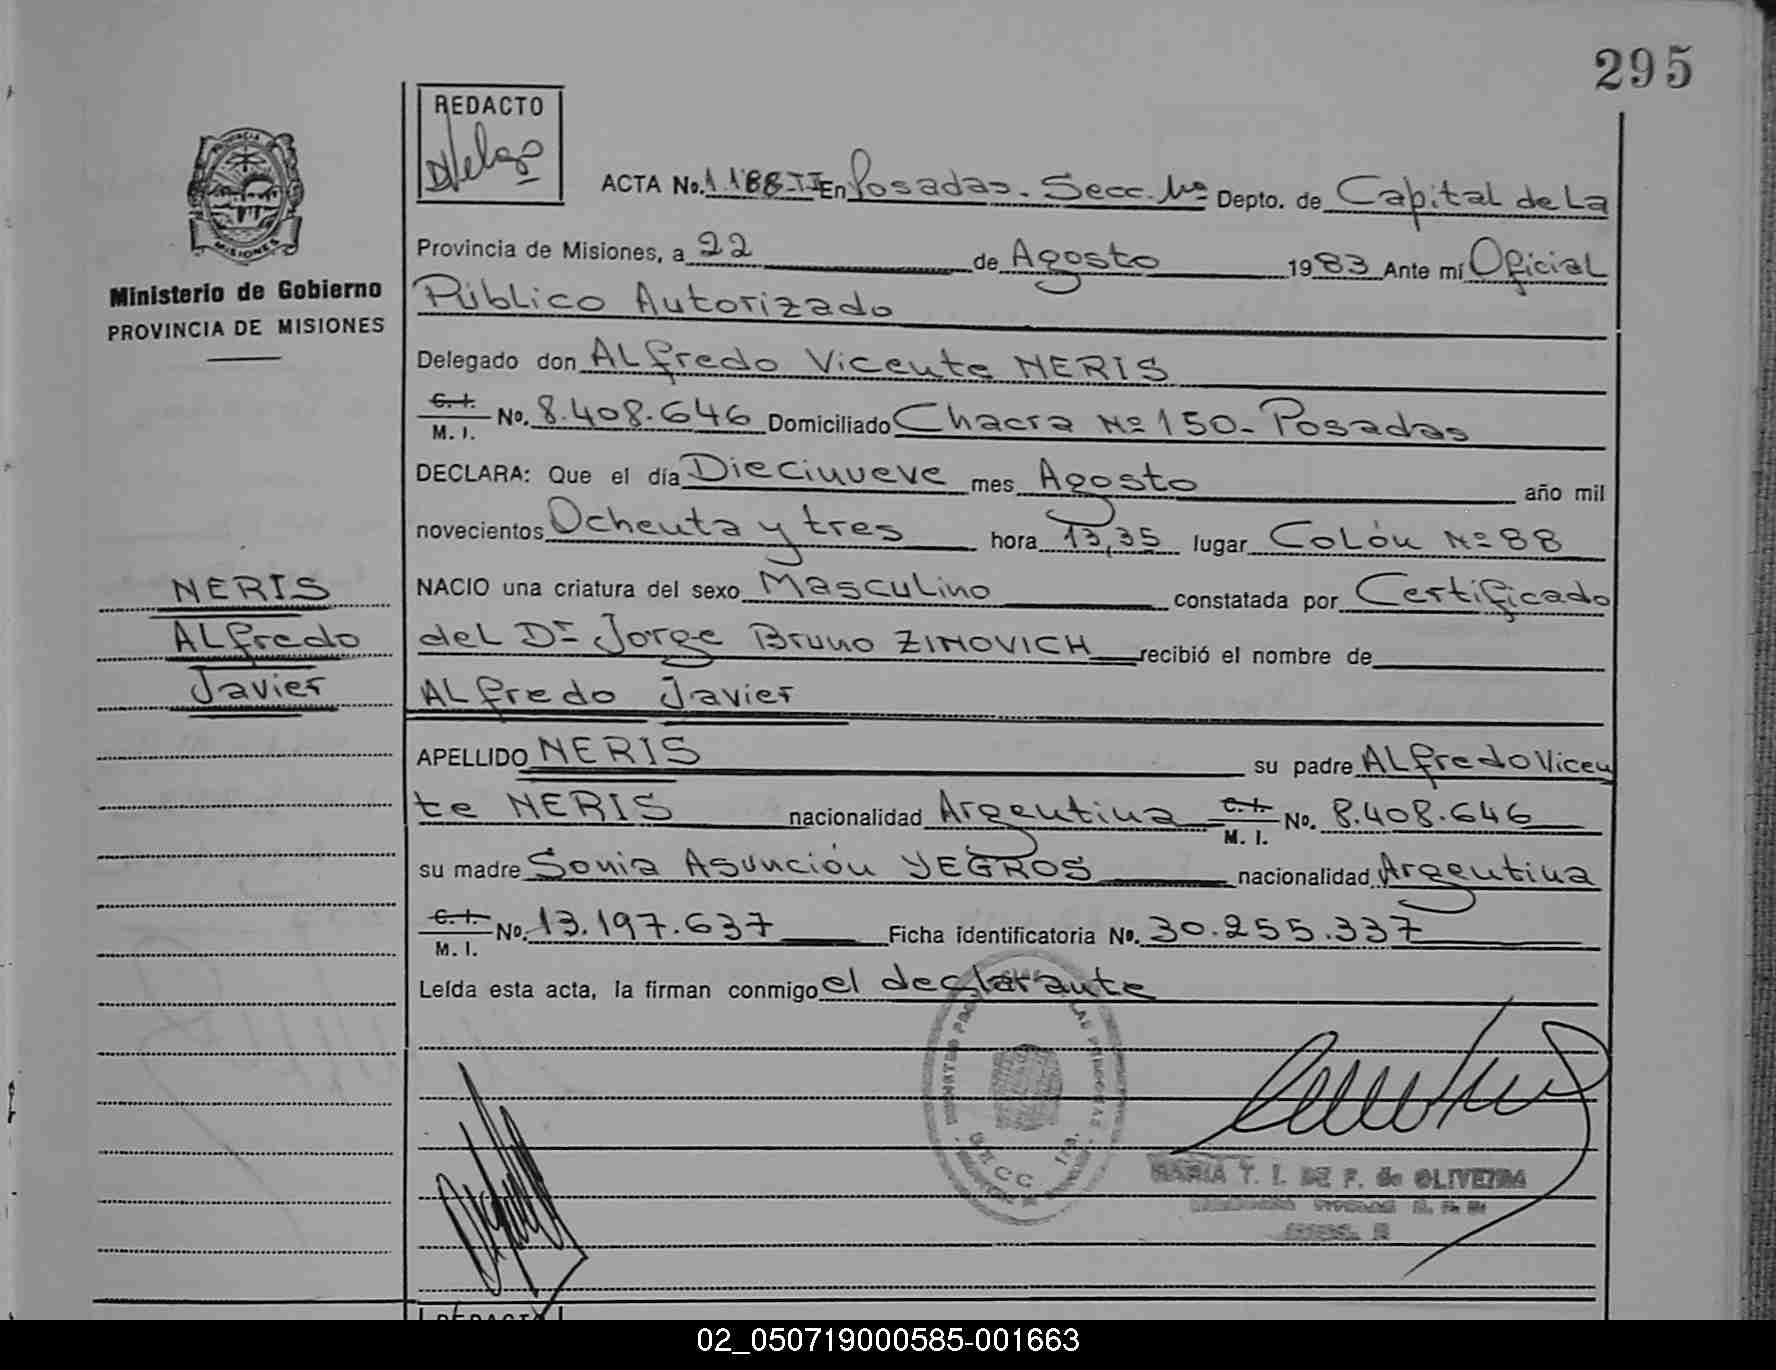 295
REDACTO
Delgo
ACTA No. 1.188-II En Posadas. Secc. Depto. de Capital de La
Provincia de Misiones, a 22 de Agosto 1983 Ante mí Oficial
Público Autorizado
Delegado don ALfredo Vicente NERIS
C. I. M. I. No. 8.408.646 Domiciliado Chacra Nº 150- Posadas
DECLARA: Que el día Diecinueve mes Agosto año mil
novecientos Ochenta y tres hora 13,35 lugar Colón Nº 88
NACIO una criatura del sexo Masculino constatada por Certificado
del Dr Jorge Bruno ZINOVICH recibió el nombre de
ALfredo Javier
APELLIDO NERIS su padre ALfredo Vicen
te NERIS nacionalidad Argentina C. I. M. I. No. 8.408.646
su madre Sonia Asunción YEGROS nacionalidad Argentina
C. I. M. I. No. 13.197.637 Ficha identificatoria No. 30.255.337
Leída esta acta, la firman conmigo el declarante
PROVINCIA
MISIONES
Ministerio de Gobierno
PROVINCIA DE MISIONES
NERIS
ALfredo
Javier
MARIA T. I. DE F. de OLIVEIRA
REDACTO
02_050719000585-001663